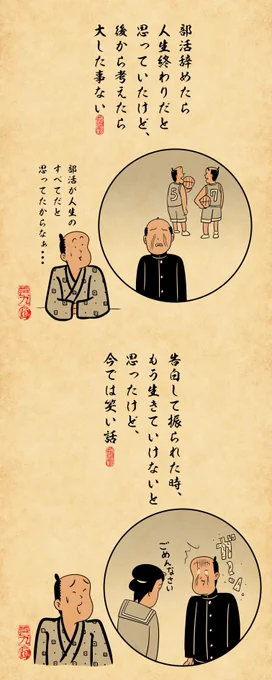 部活辞めたら
人生終わりだと
思っていたけど、
後から考えたら
大した事ない
部活が人生の
すべてだと
思ってたからなぁ…
5
7
告白して振られた時、
もう生きていけないと
思ったけど、
今では笑い話
ごめんなさい